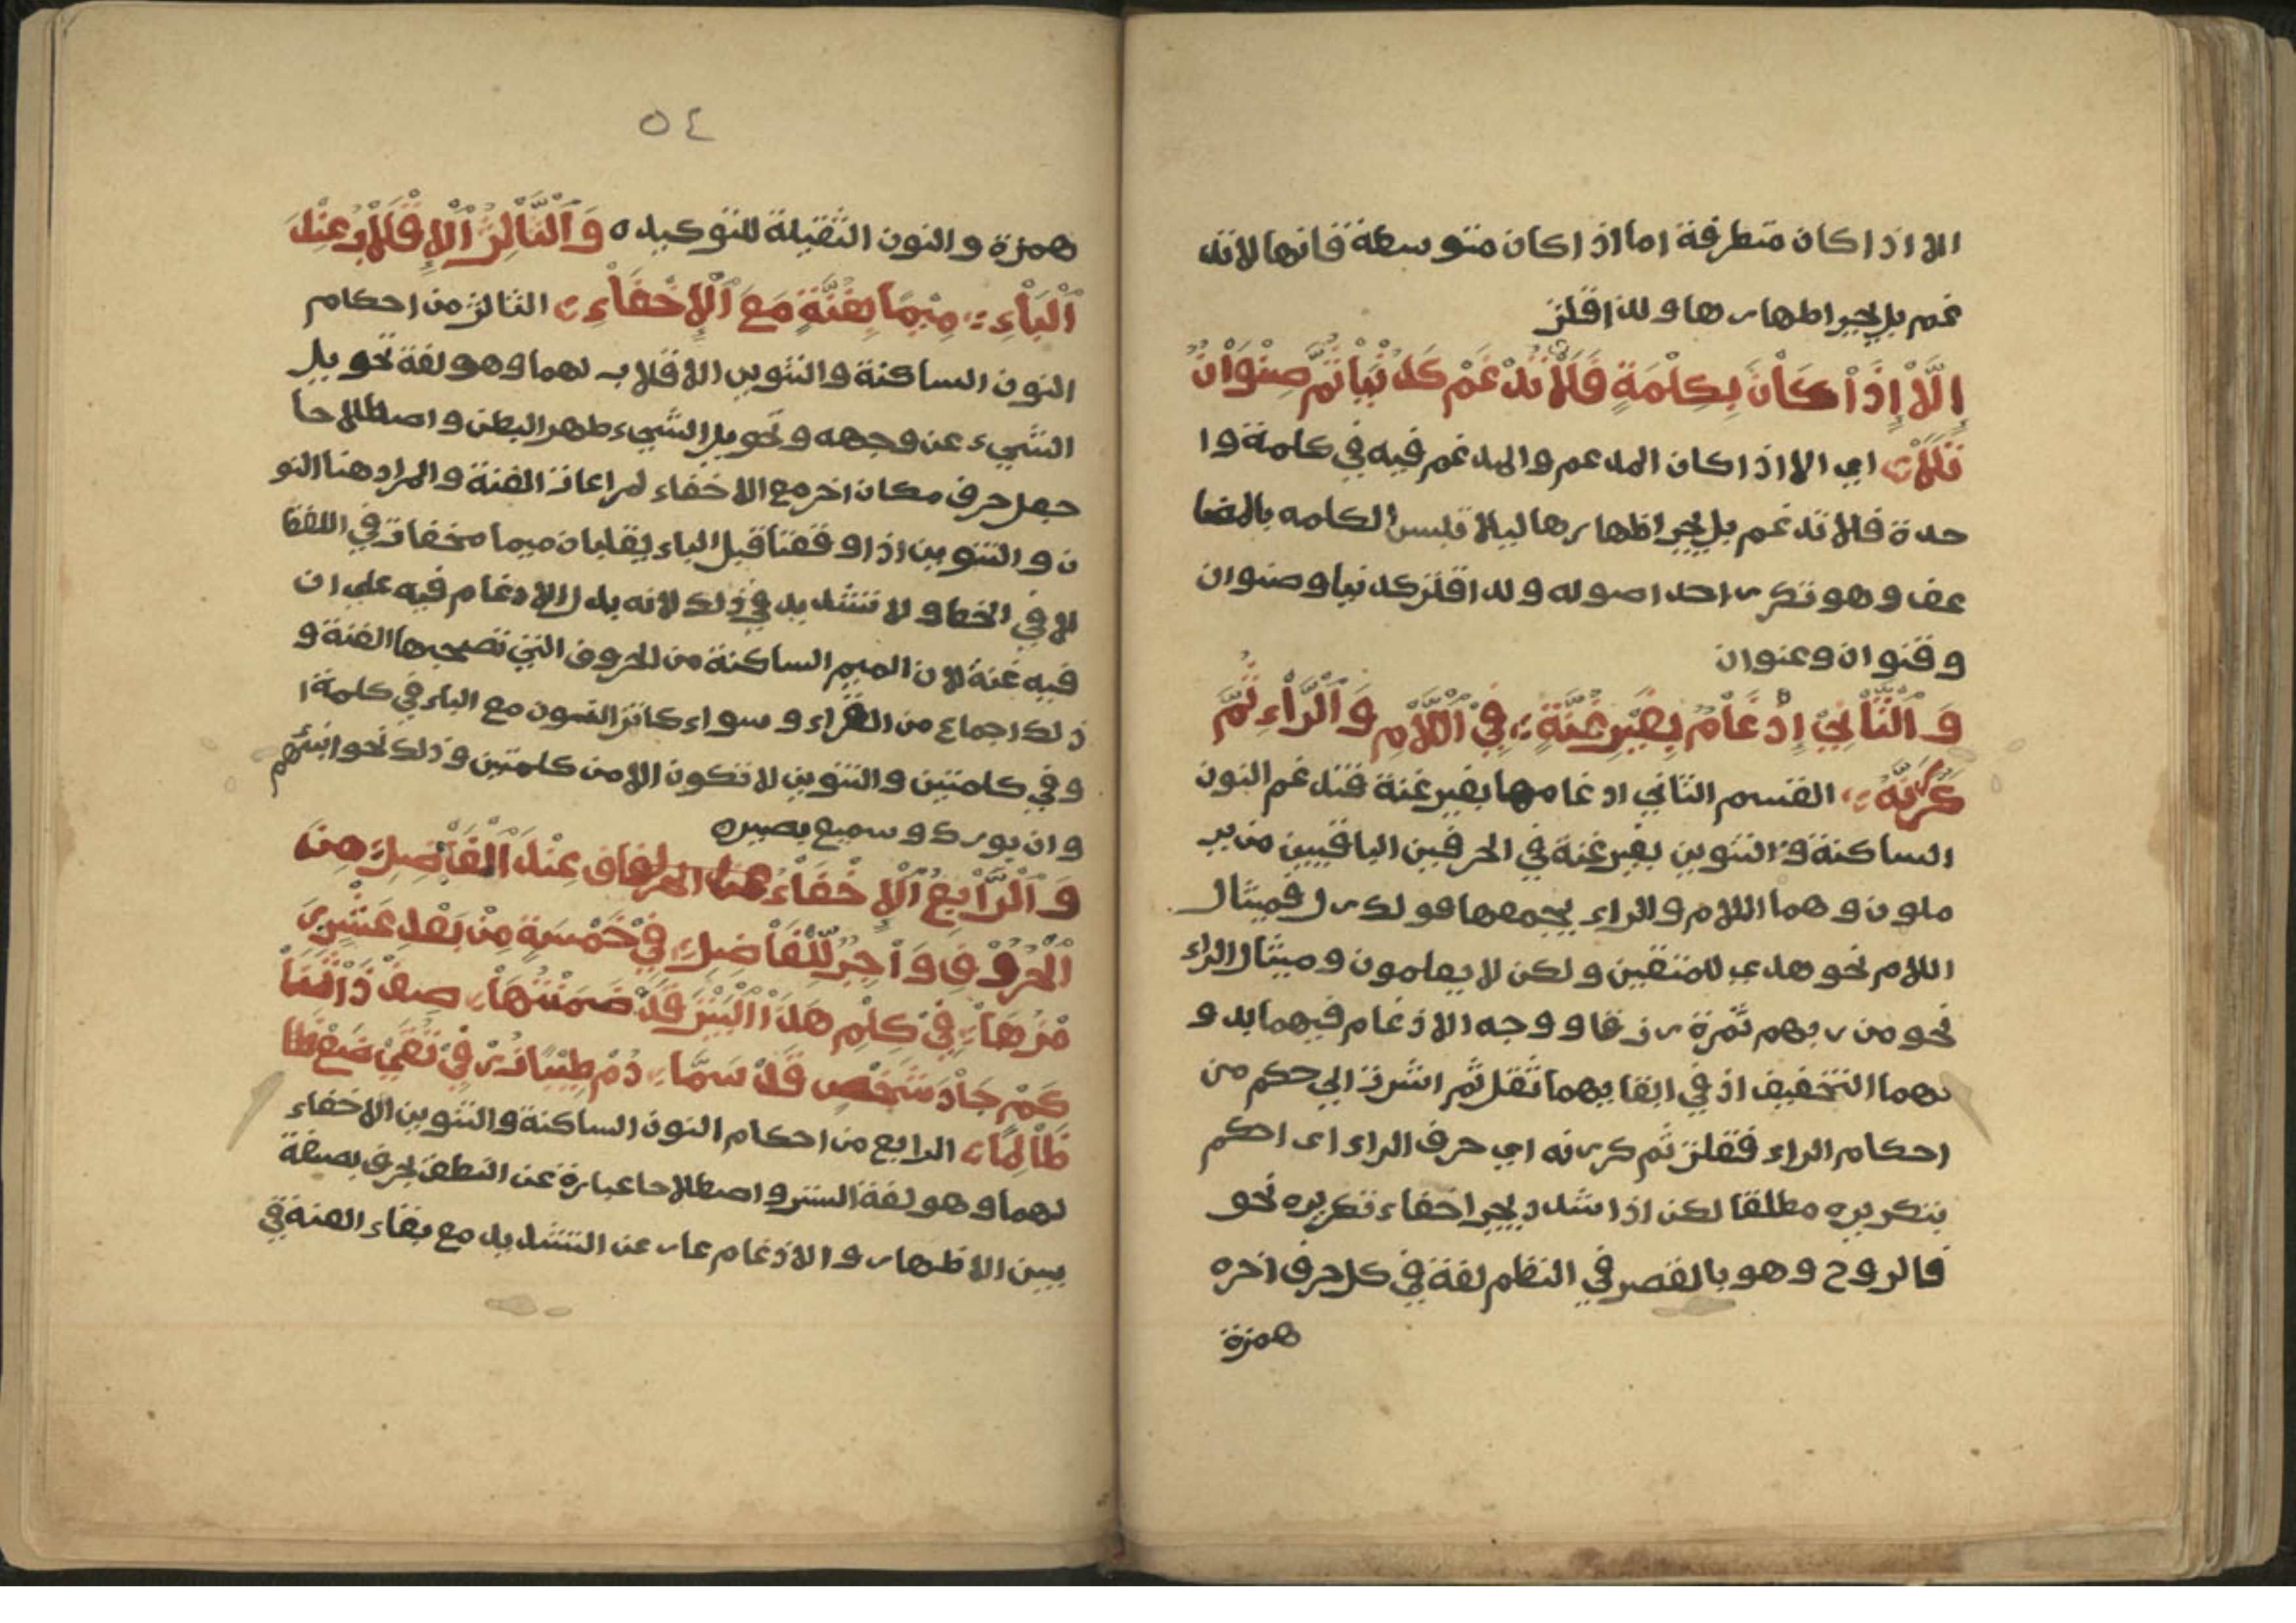 الا اذا كان متطرفة اما اذا كان متوسطة فانها لا تد
غم بل يجب اظهارها ولذا قلت
إِلَّا إِذَا كَانَ بِكِلْمَةٍ فَلَا تُدْغَمْ كَدُنْيَا ثُمَّ صِنْوَانٌ
تَلَا اي الا اذا كان المدعم والمدغم فيه في كلمة وا
حدة فلا تدغم بل يجب اظهارها ليلا تلبس الكلمه بالمضا
عف وهو تكرر احد اصوله ولذا قلت كدنيا وصنوان
وقنوان وعنوان
وَالثَّانِي إِدْغَامٌ بِغَيْرِ غُنَّةٍ فِي اللَّامِ وَالرَّاءِ ثُمَّ
كَرِّرَنَّهُ القسم الثاني ادغامها بغير غنة فتدغم النون
الساكنة والتنوين بغير غنة في الحرفين الباقيين من ير
ملون وهما اللام والراء يجمعها قولك رل فميثال
اللام نحو هدى للمتقين ولكن لا يعلمون وميثال الراء
نحو من ربهم ثمرة رزقا ووجه الادغام فيهما بد و
نهما التخفيف اذ في ابقا يهما ثقل ثم اشرت الي حكم من
احكام الراء فقلت ثم كررنه اي حرف الراء اى احكم
بتكريره مطلقا لكن اذا شدد يجب اخفاء تكريره نحو
فالروح وهو بالقصر في النظم لغة في كل حرف اخره
همزة
٥٤
همزة والنون الثقيلة للتوكيد ه وَالثَّالِثُ الْإِقْلَابُ عِنْدَ
الْبَاءِ مِيمًا بِغُنَّةٍ مَعَ الْإِخْفَاءِ الثالث من احكام
النون الساكنة والتنوين الاقلاب لهما وهو لغة تحويل
الشيء عن وجهه وتحويل الشيء ظهر البطن واصطلاحا
جعل حرف مكان اخر مع الاخفاء لمراعات الغنة والمراد هنا النو
ن والتنوين اذا وقعتا قبل الباء يقلبان ميما مخفات في اللفظ
لا في الخط ولا تشديد في ذلك لانه بدل الادغام فيه علي ان
فيه غنة لان الميم الساكنة من الحروف التي تصحبها الغنة و
ذلك اجماع من القراء وسواء كانت النون مع الباء في كلمة ا
و في كلمتين والتنوين لا تكون الا من كلمتين وذلك نحو انبئهم
وان بورك وسميع بصير ه
وَالرَّابِعُ الْإِخْفَاءُ عِنْدَ الْفَاضِلِ مِنَ
الْحُرُوفِ وَاجِبٌ لِلْفَاضِلِ فِي خَمْسَةٍ مِنْ بَعْدِ عَشْرٍ رَ
مْزُهَا فِي كِلْمِ هَذَا الْبَيْتِ قَدْ ضَمَّنْتُهَا صِفْ ذَا ثَنَا
كَمْ جَادَ شَخْصٌ قَدْ سَمَا دُمْ طَيِّبًا زِدْ فِي تُقًى ضَعْ
ظَالِمًا الرابع من احكام النون الساكنة والتنوين الاخفاء
لهما وهو لغة الستر واصطلاحا عبارة عن النطف بحرف بصفة
بين الاظهار والادغام عار عن التشديد مع بقاء الغنة في